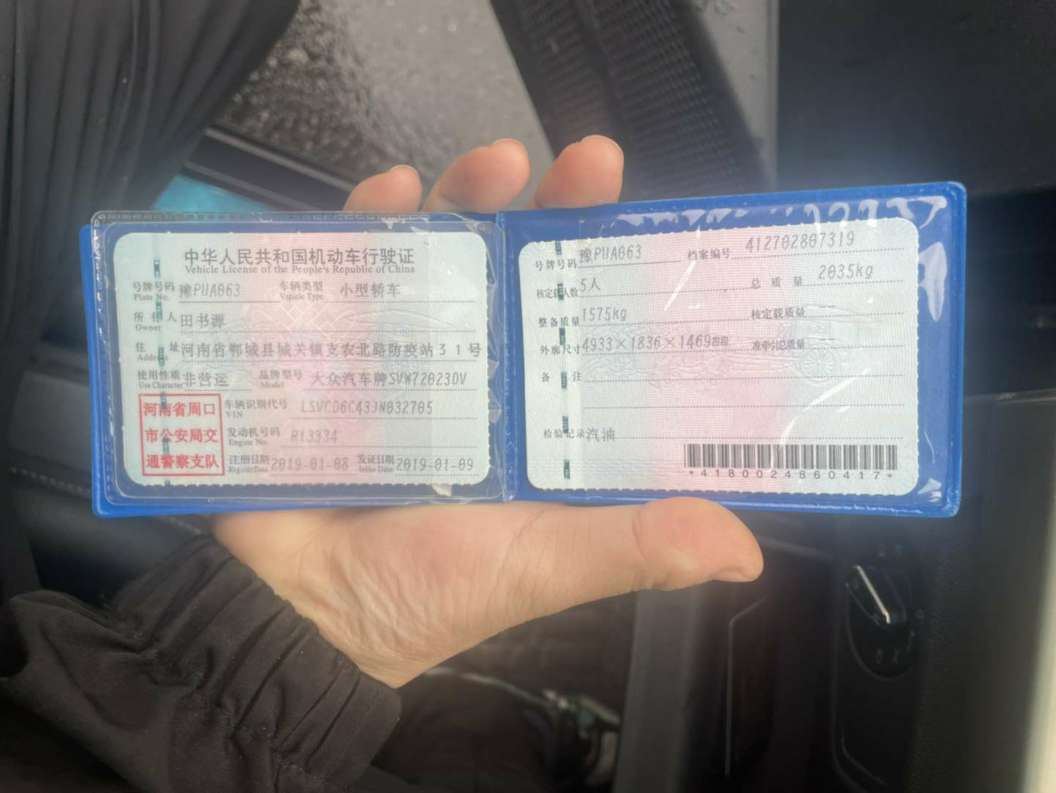 中华人民共和国机动车行驶证
Vehicle License of the People's Republic of China
号牌号码 豫PUA063 车辆类型 小型轿车
Plate No. Vehicle Type
所有人 田书源
Owner
住址 河南省郸城县城关镇支农北路防疫站31号
Address
使用性质 非营运 品牌型号 大众汽车牌SVW72023DV
Use Character Model
河南省周口
市公安局交
通警察支队
车辆识别代号 LSVCD6C43JN032705
VIN
发动机号码 813334
Engine No.
注册日期 2019-01-08 发证日期 2019-01-09
Register Date Issue Date
号牌号码 豫PUA063 档案编号 412702807319
核定载人数 5人 总质量 2035kg
整备质量 1575kg 核定载质量 --
外廓尺寸 4933×1836×1469mm 准牵引总质量 --
备注
检验记录 汽油
*4180024860417*